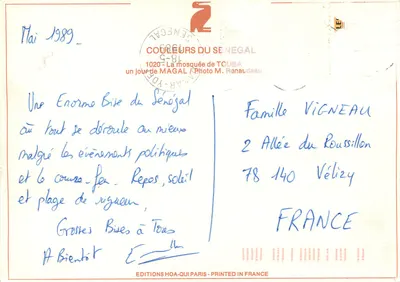 Mai 1989_
COULEURS DU SENEGAL
1020 - La mosquée de TOUBA
un jour de MAGAL / Photo M. Renaudeau
Une Enorme Bise du Sénégal
où tout se déroule au mieux
malgré les évènements politiques
et le couvre-feu. Repos, soleil
et plage de rigueur,
Grosses Bises à Tous
A Bientôt
Famille VIGNEAU
2 Allée du Roussillon
78 140 Vélizy
FRANCE
EDITIONS HOA-QUI PARIS - PRINTED IN FRANCE